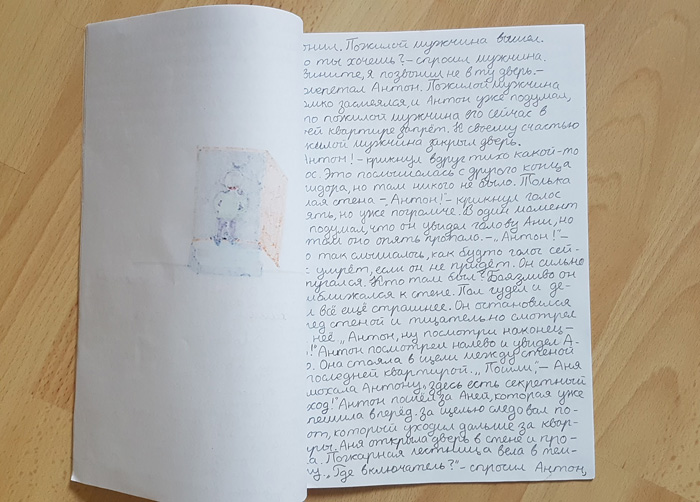 онил. Пожилой мужчина вышел.
о ты хочешь? – спросил мужчина.
звините, я позвонил не в ту дверь. –
епетал Антон. Пожилой мужчина
омко засмеялся, и Антон уже подумал,
то пожилой мужчина его сейчас в
ей квартире запрёт. К своему счастью
жилой мужчина закрыл дверь.
Антон! – крикнул вдруг тихо какой-то
ос. Это послышалось с другого конца
идора, но там никого не было. Только
лая стена –„Антон!" – крикнул голос
ять, но уже погромче. В один момент
подумал, что он увидел голову Ани, но
том оно опять пропало. –„Антон!"–
о так слышалось, как будто голос сей-
с умрёт, если он не прийдёт. Он сильно
пугался. Кто там был? Боязливо он
иближался к стене. Пол гудел и де-
л всё ещё страшнее. Он остановился
ред стеной и тщательно смотрел
неё „Антон, ну посмотри наконец –
о!" Антон посмотрел налево и увидел А-
ю. Она стояла в щели между стеной
последней квартирой. „Пошли", – Аня
махала Антону, „здесь есть секретный
ход!" Антон пошёл за Аней, которая уже
пешила вперёд. За щелью следовал по-
от, который уходил дальше за квар-
ры. Аня открыла дверь в стене и про-
а. Пожарная лестница вела в тем-
у. „Где включатель?" – спросил Антон,